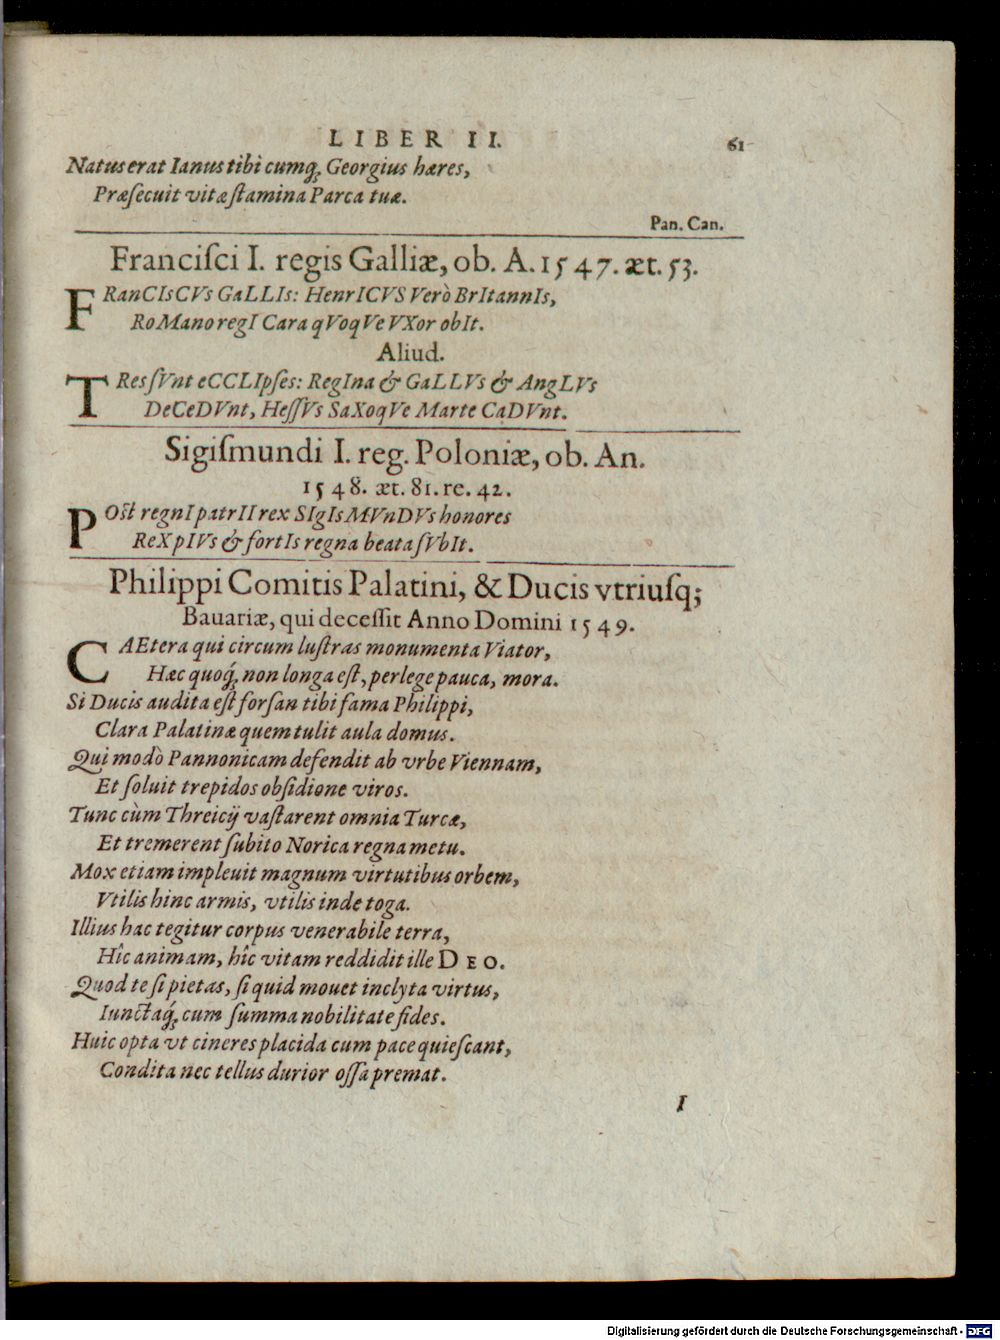 LIBER II. 61
Natus erat Ianus tibi cumq́; Georgius hæres,
Præſecuit vitæ ſtamina Parca tuæ.
Pan. Can.
Franciſci I. regis Galliæ, ob. A. 1547. æt. 53.
FRanCIsCVs GaLLIs: HenrICVS Verò BrItannIs,
RoMano regI Cara qVoqVe VXor obIt.
Aliud.
TRes ſVnt eCCLIpſes: RegIna & GaLLVs & AngLVs
DeCeDVnt, HeſſVs SaXoqVe Marte CaDVnt.
Sigiſmundi I. reg. Poloniæ, ob. An.
1548. æt. 81. re. 42.
POſt regnI patrII rex SIgIsMVnDVs honores
ReXpIVs & fortIs regna beata ſVbIt.
Philippi Comitis Palatini, & Ducis vtriuſq;
Bauariæ, qui deceſſit Anno Domini 1549.
CAEtera qui circum luſtras monumenta Viator,
Hæc quoq́; non longa eſt, perlege pauca, mora.
Si Ducis audita eſt forſan tibi fama Philippi,
Clara Palatinæ quem tulit aula domus.
Qui modò Pannonicam defendit ab vrbe Viennam,
Et ſoluit trepidos obſidione viros.
Tunc cùm Threicij vaſtarent omnia Turcæ,
Et tremerent ſubito Norica regna metu.
Mox etiam impleuit magnum virtutibus orbem,
Vtilis hinc armis, vtilis inde toga.
Illius hac tegitur corpus venerabile terra,
Hîc animam, hîc vitam reddidit ille DEO.
Quod te ſi pietas, ſi quid mouet inclyta virtus,
Iunctaq́; cum ſumma nobilitate fides.
Huic opta vt cineres placida cum pace quieſcant,
Condita nec tellus durior oſſa premat.
I
Digitalisierung gefördert durch die Deutsche Forschungsgemeinschaft - DFG